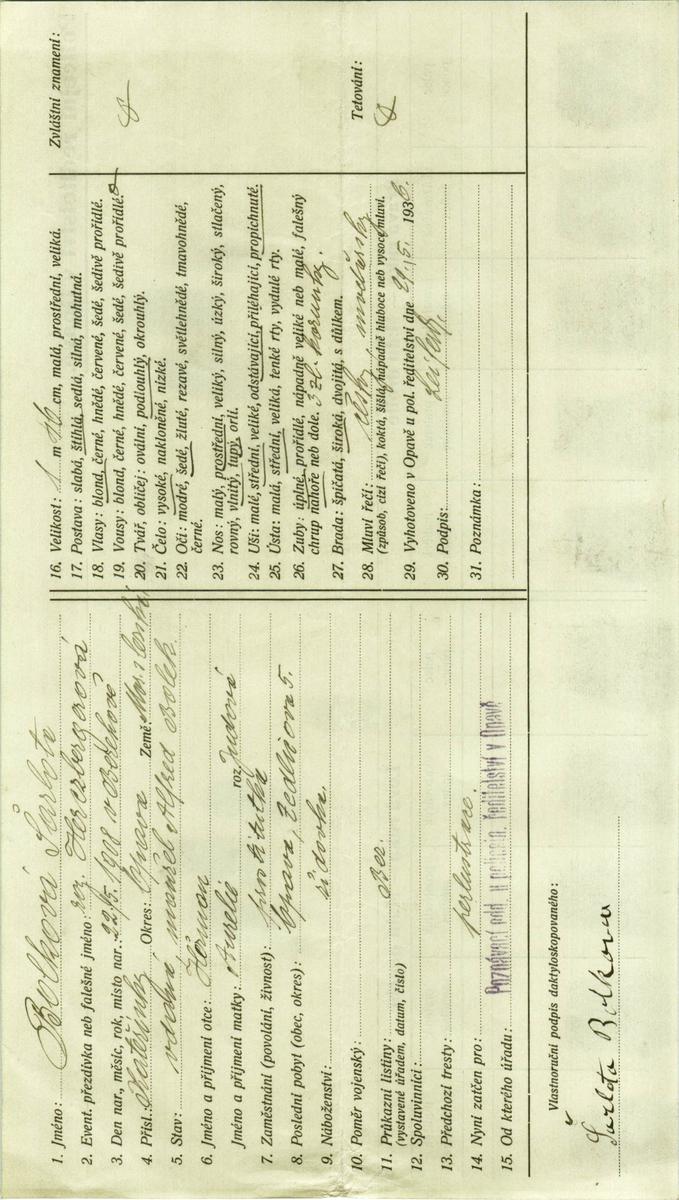 1. Jméno: Bolková Šarlota
2. Event. přezdívka neb falešné jméno: roz. Herzbergerová
3. Den nar., měsíc, rok, místo nar.: 22/5. 1908 v Berehově
4. Přísl.: Kateřinky Okres: Opava Země: Mor. slezská
5. Stav: vdaná, manžel Alfred Bolek
6. Jméno a příjmení otce: Heřman
Jméno a příjmení matky: Aurelie roz. Judová
7. Zaměstnání (povolání, živnost): prostitutka
8. Poslední pobyt (obec, okres): Opava, Sedlicova 5.
9. Náboženství: židovka
10. Poměr vojenský:
11. Průkazní listiny: Bez.
(vystavené úřadem, datum, číslo)
12. Spoluvinníci:
13. Předchozí tresty:
14. Nyní zatčen pro: perlustrace.
15. Od kterého úřadu: Poznávací odd. u policejn. ředitelství v Opavě
16. Velikost: 1 m 46 cm, malá, prostřední, veliká.
17. Postava: slabá, štíhlá, sedlá, silná, mohutná.
18. Vlasy: blond, černé, hnědé, červené, šedé, šedivě prořídlé.
19. Vousy: blond, černé, hnědé, červené, šedé, šedivě prořídlé.
20. Tvář, obličej: ovální, podlouhlý, okrouhlý.
21. Čelo: vysoké, nakloněné, nízké.
22. Oči: modré, šedé, žluté, rezavé, světlehnědé, tmavohnědé,
černé.
23. Nos: malý, prostřední, veliký, silný, úzký, široký, stlačený,
rovný, vlnitý, tupý, orlí.
24. Uši: malé, střední, veliké, odstávající, přiléhající, propichnuté.
25. Ústa: malá, střední, veliká, tenké rty, vydulé rty.
26. Zuby: úplné, prořídlé, nápadně veliké neb malé, falešný
chrup nahoře neb dole. 3 zl. korunky.
27. Brada: špičatá, široká, dvojitá, s důlkem.
28. Mluví řečí: česky, maďarsky
(způsob, cizí řečí), koktá, šišlá, nápadně hluboce neb vysoce mluví.
29. Vyhotoveno v Opavě u pol. ředitelství dne 29./5. 1936.
30. Podpis:
31. Poznámka:
Zvláštní znamení:
Tetování:
Vlastnoruční podpis daktyloskopovaného:
Šarlota Bolkova